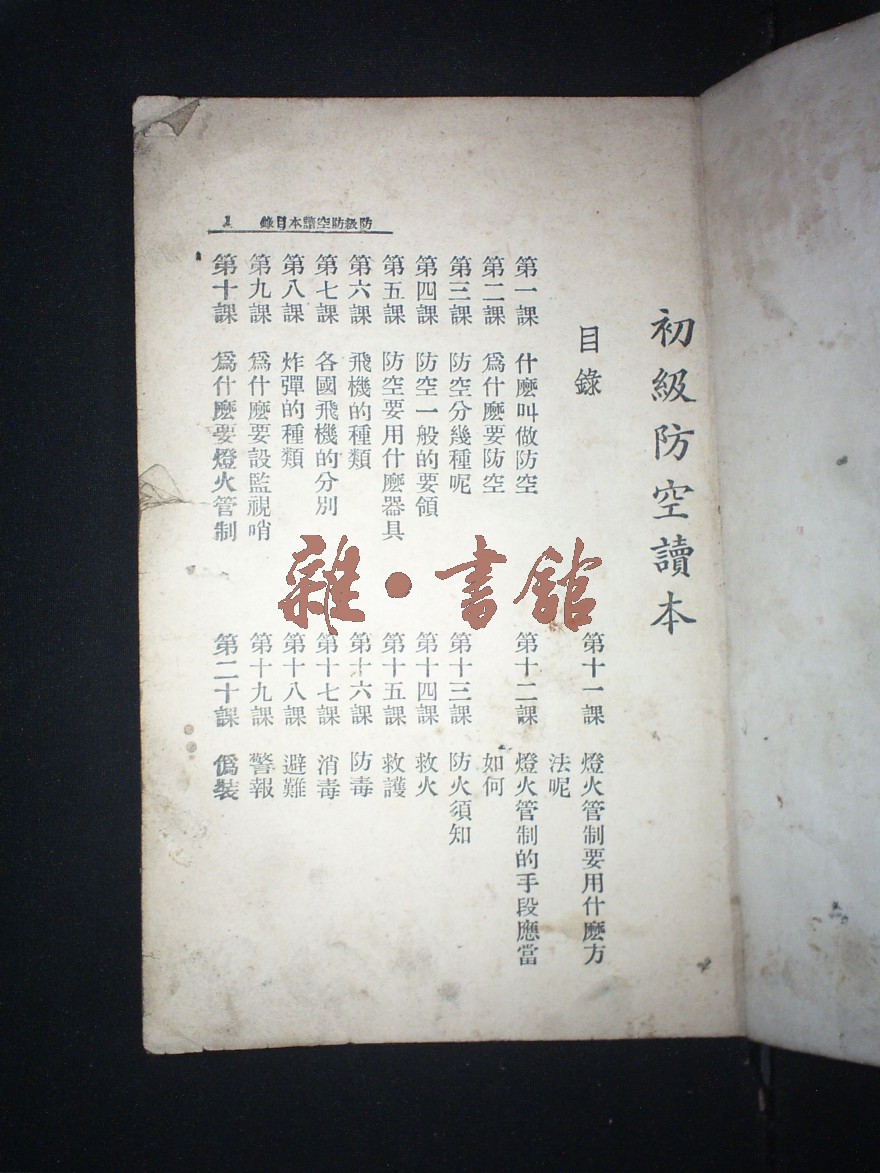 初級防空讀本
目錄
第一課 什麼叫做防空
第二課 爲什麼要防空
第三課 防空分幾種呢
第四課 防空一般的要領
第五課 防空要用什麼器具
第六課 飛機的種類
第七課 各國飛機的分別
第八課 炸彈的種類
第九課 爲什麼要設監視哨
第十課 爲什麼要燈火管制
第十一課 燈火管制要用什麼方
法呢
第十二課 燈火管制的手段應當
如何
第十三課 防火須知
第十四課 救火
第十五課 救護
第十六課 防毒
第十七課 消毒
第十八課 避難
第十九課 警報
第二十課 僞裝
防級防空讀本目錄 1
雜·書館